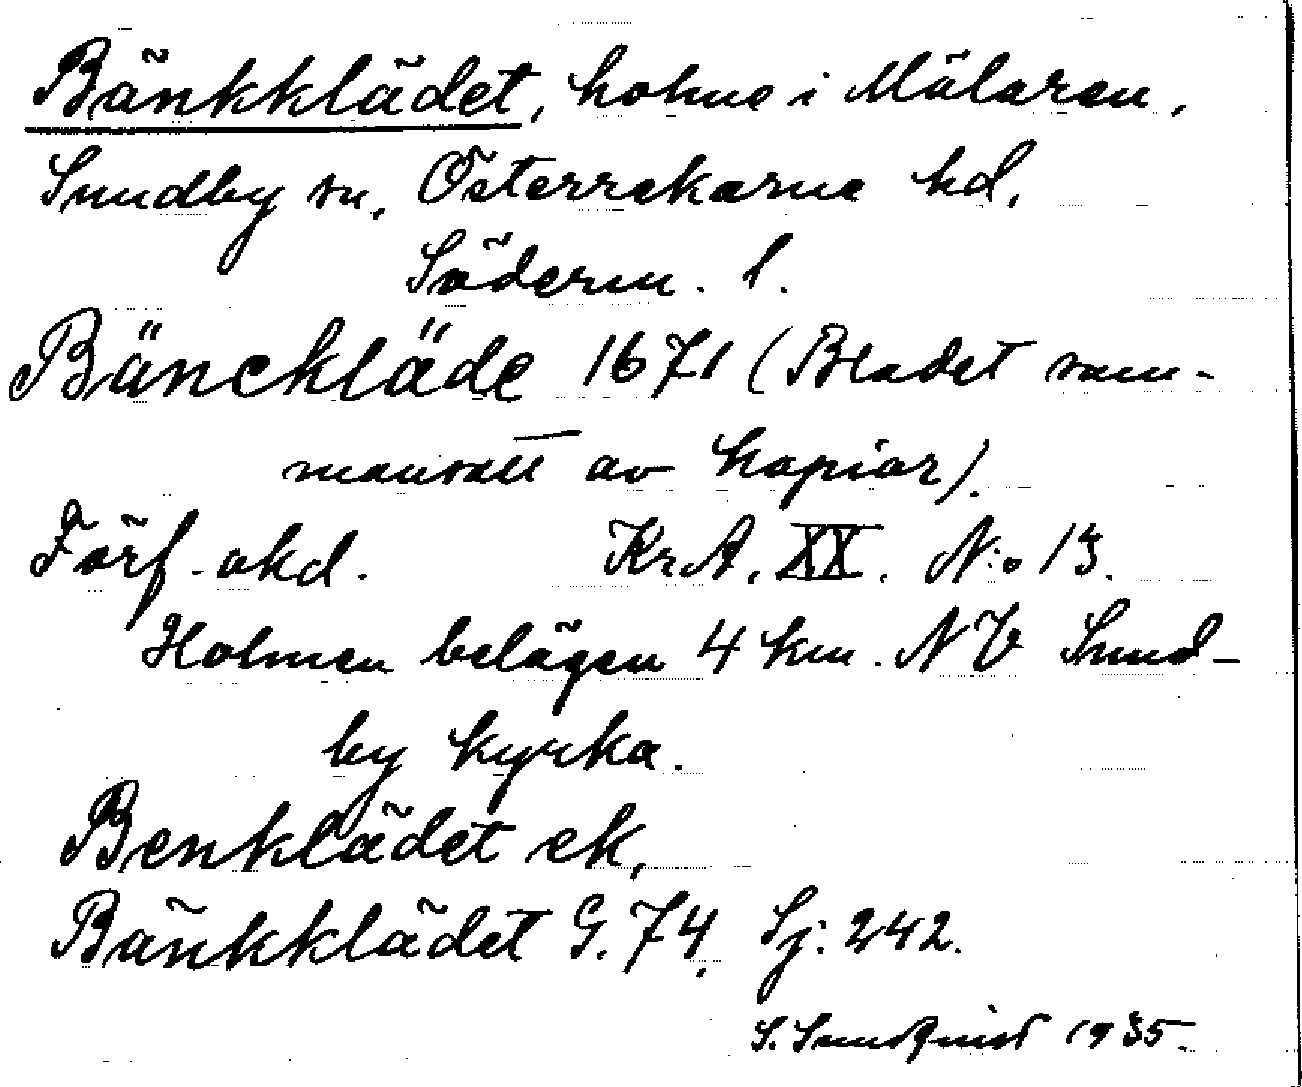 Bänkklädet, holme i Mälaren,
Sundby sn, Österrekarne hd,
Söderm. l.
Bäneckläde 1671 (Bladet sam-
mansatt av kopior).
Förf. okd. KrA. XX. N:o 13.
Holmen belägen 4 km. NV Sund-
by kyrka.
Benklädet ek,
Bänkklädet G. 74, Sj: 242.
S. Sundquist 1935.